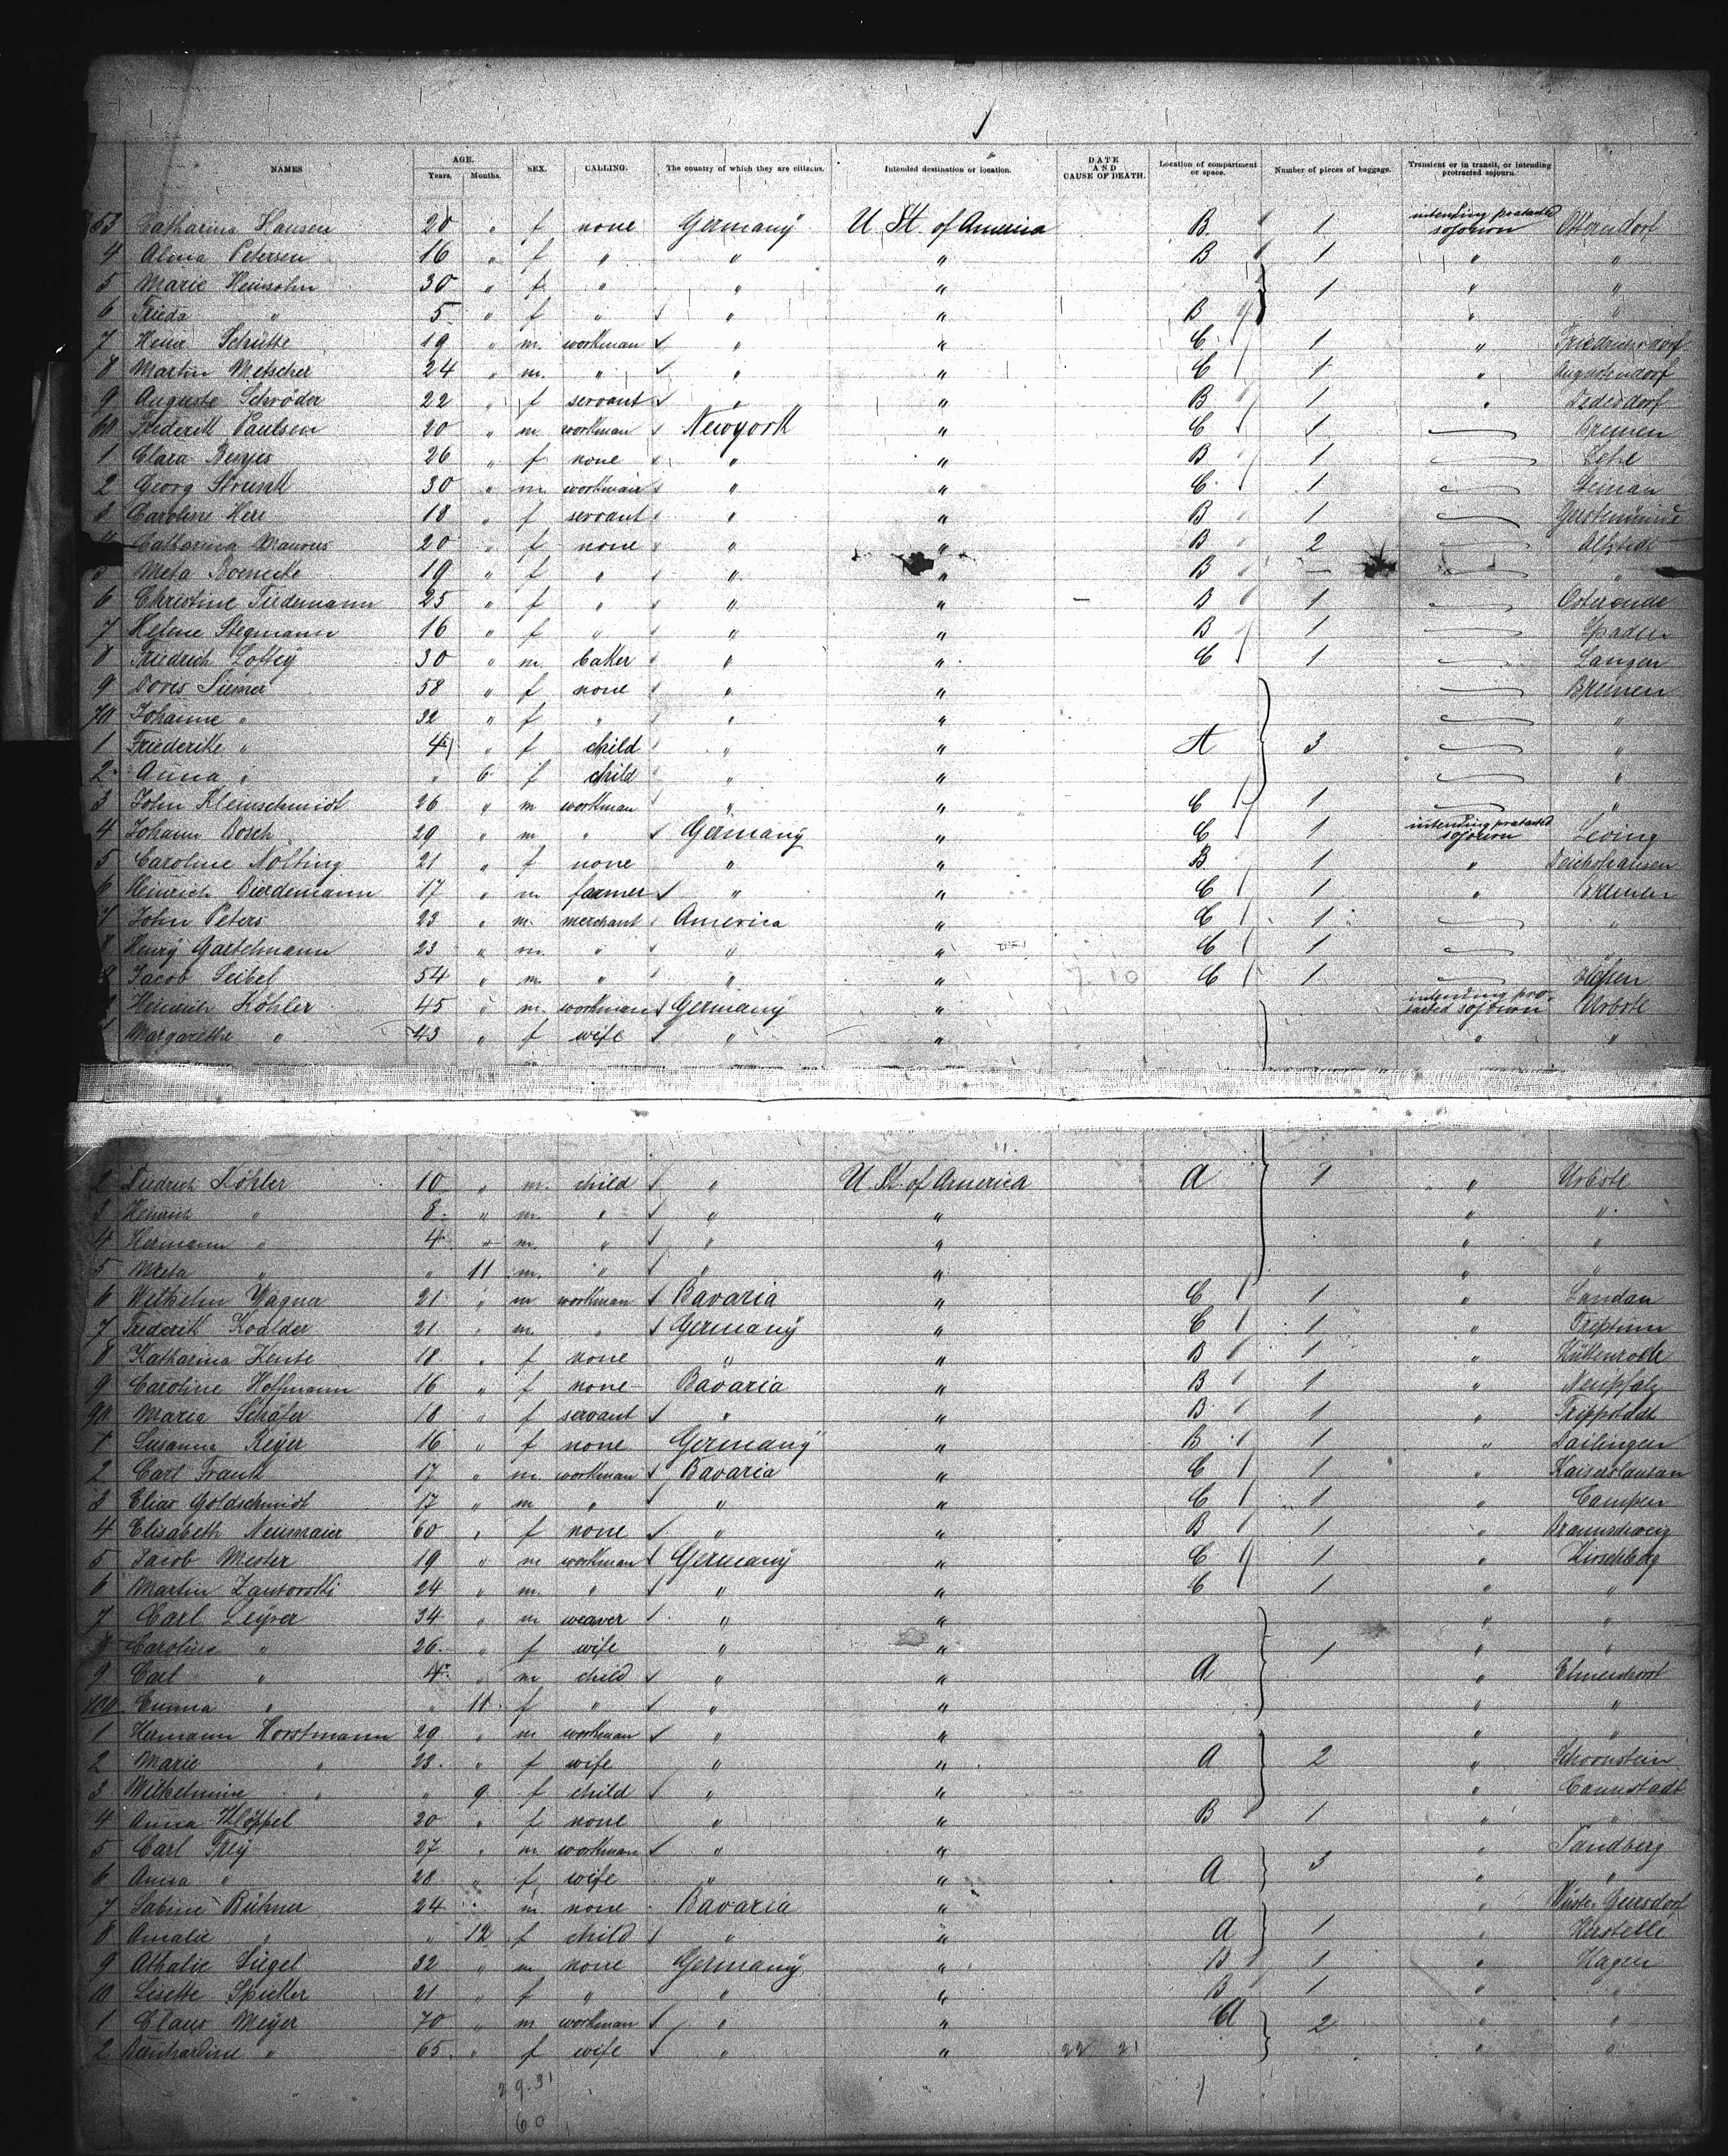 NAMES AGE. Years. Months. SEX. CALLING. The country of which they are citizens. Intended destination or location. DATE AND CAUSE OF DEATH. Location of compartment or space. Number of pieces of baggage. Transient or in transit, or intending protracted sojourn.
53 Catharina Hansen 20 " f none Germany U St of America B 1 intending protracted sojourn Otterndorf
4 Alma Petersen 16 " f " " " B 1 " "
5 Marie Heinsohn 30 " f " " " 1 " "
6 Frieda " 5 " f " " " B " "
7 Heinr. Schütte 19 " m. workman " " C 1 " Friedrichsdorf
8 Martin Metscher 24 " m. " " " C 1 " Augustendorf
9 Auguste Schröder 22 " f servant " " B 1 "
60 Frederik Paulsen 20 " m workman Newyork " C 1 Bremen
1 Clara Benjes 26 " f none " " B 1 Lehe
2 Georg Strunk 30 " m workman " " C 1
3 Caroline Herr 18 " f servant " " B 1 Geestemünde
4 Catharina 20 " f none " " B 2
5 Meta Boenecke 19 " f " " " B — "
6 Christine Tiedemann 25 " f " " " B 1
7 Helene Stegmann 16 " f " " " B 1 Spaden
8 Friedrich 30 " m baker " " C 1 Langen
9 Doris Siemer 58 " f none " " Bremen
70 Johanne " 32 " f " " " "
1 Friederike " 4 " f child " " A 3 "
2 Anna " " 6 f child " " "
3 John Kleinschmidt 26 " m workman " " C 1 "
4 Johann Bosch 29 " m " Germany " C 1 intending protracted sojourn
5 Caroline Nolting 21 " f none " " B 1 "
6 Heinrich Bierdemann 17 " m farmer " " C 1 " Bremen
7 John Peters 23 " m. merchant America " C 1 "
8 Henry Gaetelmann 23 " m. " " " C 1
9 Jacob Seibel 54 " m. " " " C 1
Heinrich Köhler 45 " m. workman Germany " intending protracted sojourn
1 Margarethe " 43 " f wife " " " "
2 Diedrich Köhler 10 " m. child " U. St. of America A 1 "
3 Heinrich " 8 " m. " " " " "
4 Hermann " 4 " m. " " " " "
5 Meta " " 11 m. " " " " "
6 Wilhelm Wagner 21 " m workman Bavaria " C 1 " Landau
7 Frederik Koalder 21 " m. " Germany " C 1 "
8 Katharina Zente 18 " f none " " B 1 " Hüttenrode
9 Caroline Hoffmann 16 " f none Bavaria " B 1 " Neupfalz
90 Maria Schäfer 18 " f servant " " B 1 "
1 Susanna Reyer 16 " f none Germany " B 1 " Dailingen
2 Carl Frank 17 " m workman Bavaria " C 1 "
3 Elias Goldschmidt 17 " m " " " C 1 " Campen
4 Elisabeth Neumaier 60 " f none " " B 1 " Braunschweig
5 Jacob Mester 19 " m workman Germany " C 1 " Hirschberg
6 Martin 24 " m. " " " C 1 " "
7 Carl Leyrer 34 " m weaver " " " "
8 Caroline " 26 " f wife " " 1 " "
9 Carl " 4 " m child " " A "
100 Emma " " 11 f " " " " "
1 Hermann Horstmann 29 " m workman " " " "
2 Marie " 23 " f wife " " A 2 "
3 Wilhelmine " " 9 f child " " " Cannstadt
4 Anna Klöppel 20 " f none " " B 1 " "
5 Carl Frey 27 " m workman " " " Sandberg
6 Anna " 28 " f wife " " A 3 " "
7 Sabine Bühner 24 " m none Bavaria " "
8 Amalie " " 12 f child " " A 1 "
9 Athalie Siegel 32 " m none Germany " B 1 " Hagen
10 Lisette Spieker 21 " f " " " B 1 " "
1 Claus Meyer 70 " m workman " " A 2 " "
2 " 65 " f wife " " " "
60